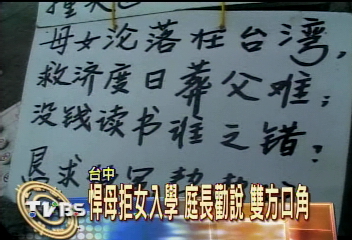 母女沦落在台湾，
救济度日葬父难；
没钱读书谁之错？
恳求
台中
悍母拒女入學 庭長勸說 雙方口角
TVBS